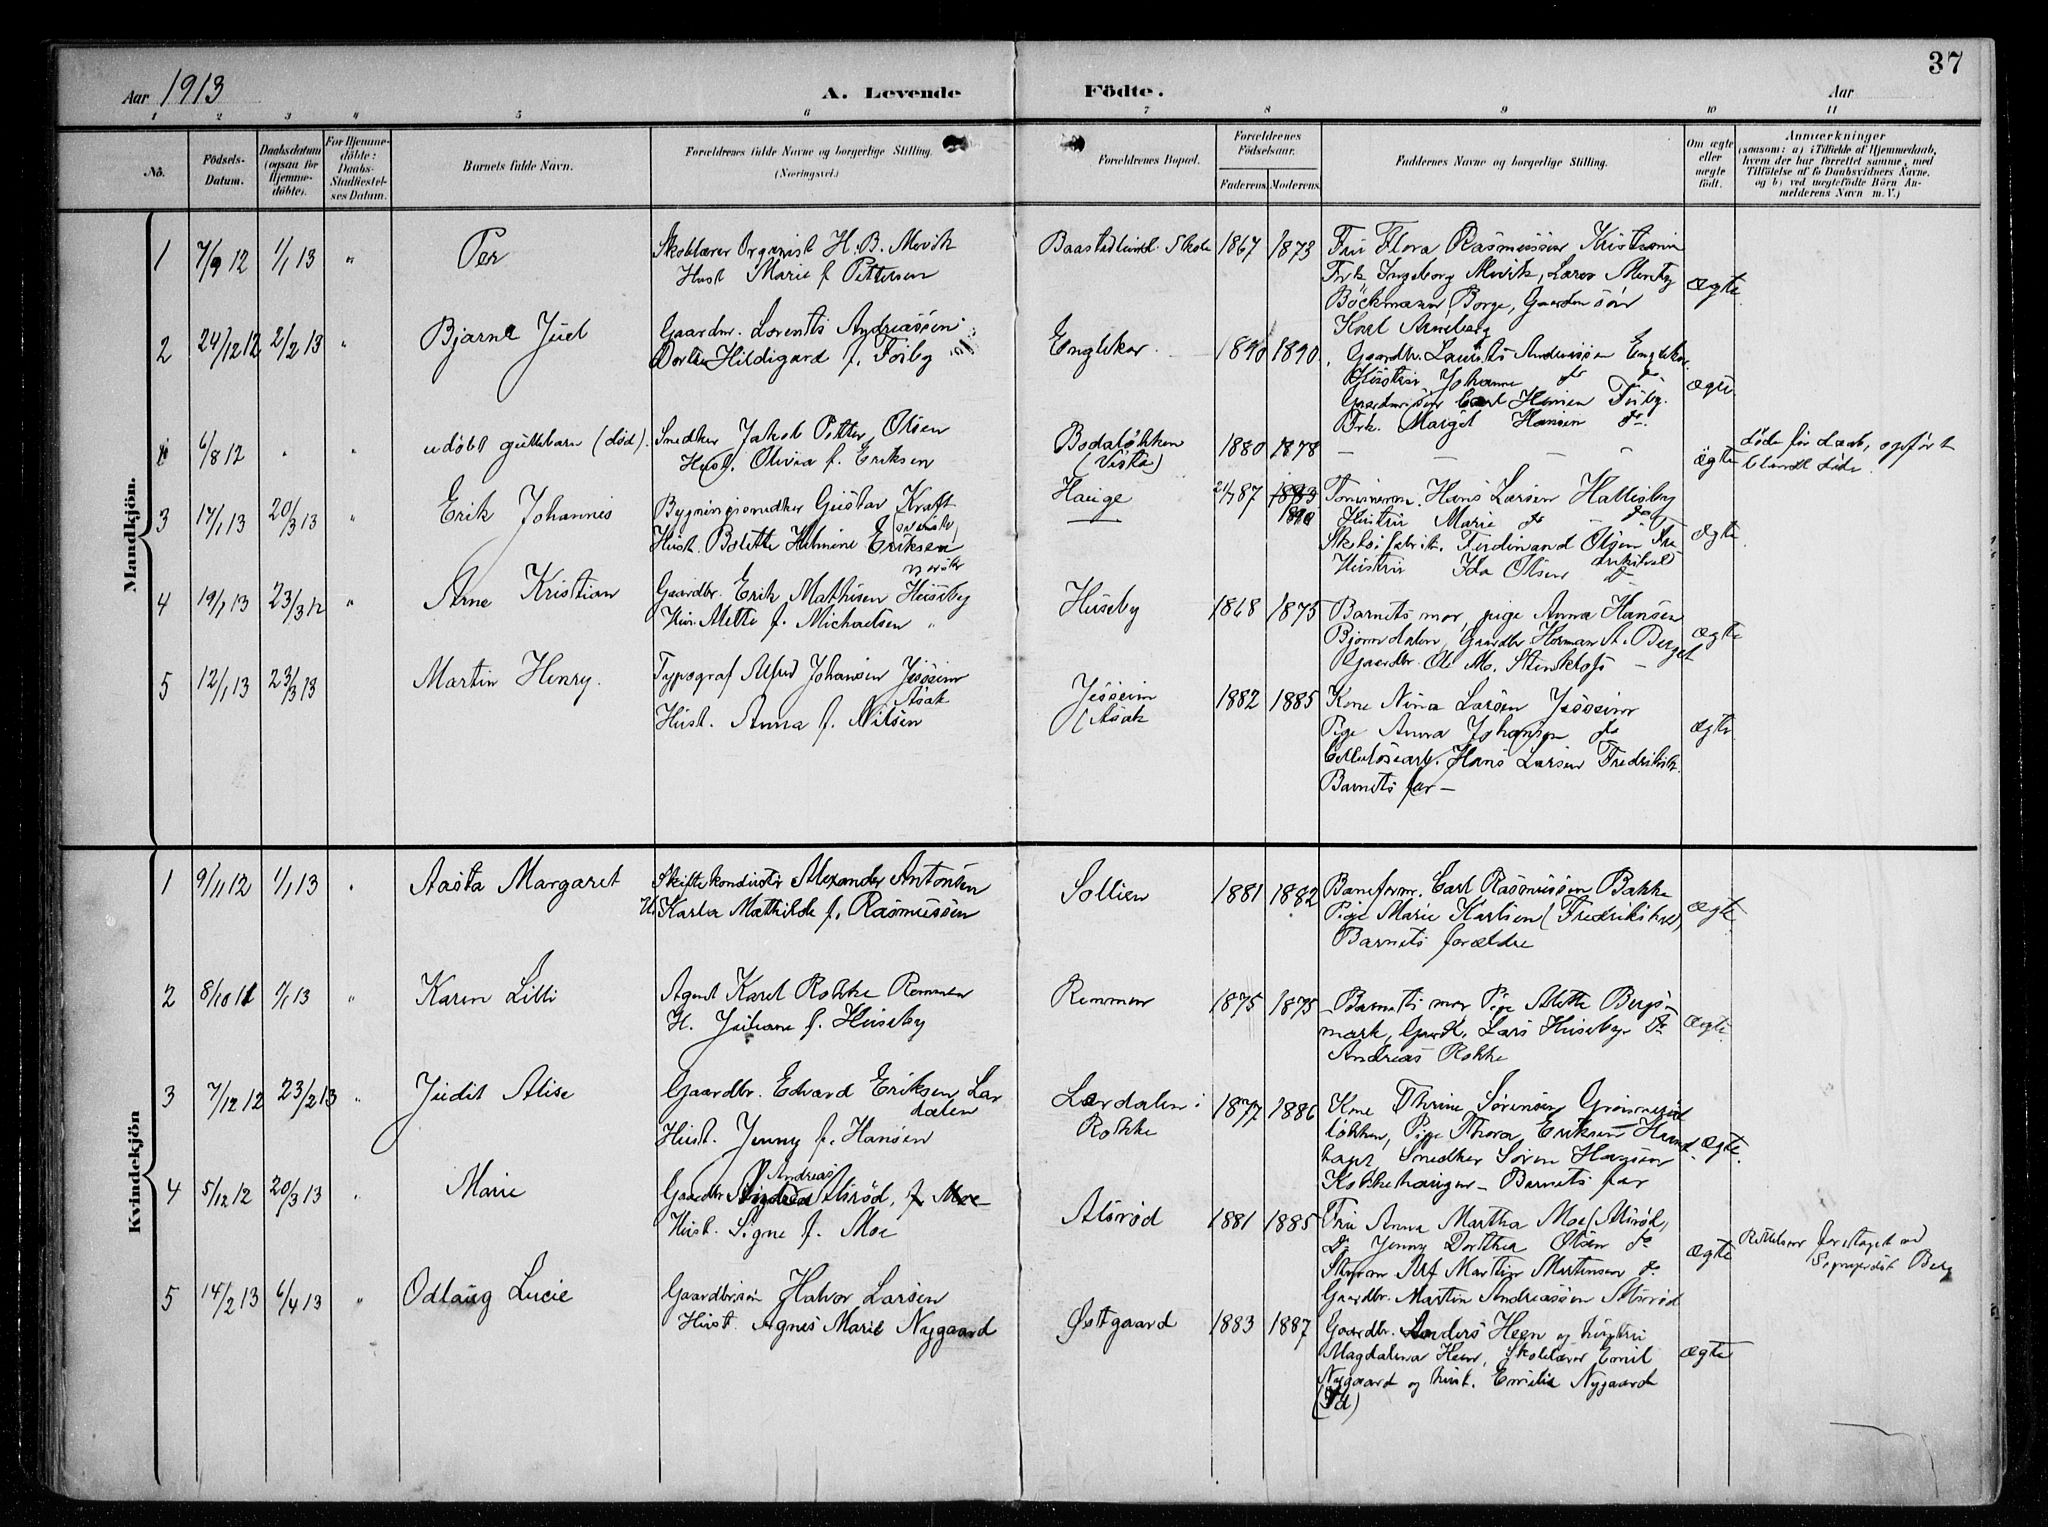 37
Aar 1913
A. Levende Födte.
Aar
1 2 3 4 5 6 7 8 9 10 11
No.
Födsels-
Datum.
Daabsdatum
(ogsaa for
Hjemme-
döbte).
For Hjemme-
döbte:
Daabs-
Stadfæstel-
ses Datum.
Barnets fulde Navn.
Forældrenes fulde Navne og borgerlige Stilling.
(Næringsvei.)
Forældrenes Bopæl.
Forældrenes
Födselsaar.
Faderens. Moderens.
Faddernes Navne og borgerlige Stilling.
Om ægte
eller
uægte
födt.
Anmærkninger
(saasom: a) i Tilfælde af Hjemmedaab,
hvem der har forrettet samme, med
Tilföielse af to Daabsvidners Navne,
og b) ved uægtefödte Börn An-
melderens Navn m. V.)
Mandkjön.
1 7/9 12 1/1 13 " Per
Skolelærer Organist H. B. Mevik
Hust Marie f. Pettersen
Baastadlund Skole 1867 1873
Fru Flora Rasmussen Kristiania
Frk Ingeborg Mevik, Lærer
Böckmann Borge, Gaardm sön
Karl Arneberg
ægte
2 24/12 12 2/2 13 " Bjarne Juel
Gaardm. Lorents Andreassen
Dorthe Hildigard f. Torby
Englekor 1890 1890
Gaardbr. Laurits Andreassen Englekor
Hustru Johanne do do
Carl Hansen Torby.
Frk. Margit Hansen do
ægte
6/8 12 " " udøbt guttebarn (död).
Snedker Jakob Petter Olsen
Hust. Olivia f. Eriksen
Bodaløkken
(Vista)
1880 1878 — — — —
ægte
Døde før daab, opført
blandt døde.
3 17/1 13 20/3 13 " Erik Johannes
Bygningssnedker Gustav Kraft
(svensk)
Hust. Bolette Helmine Eriksen
norsk
Hauge 21/7 87 1883
1890
Tømmerm. Hans Larsen Hallesby
Hustru Marie do do
Skotøifabrik. Ferdinand Olsen Fre
drikshald
Hustru Ida Olsen do
ægte
4 19/1 13 23/3 12 " Arne Kristian
Gaardbr. Erik Mathisen Huseby
Hus. Mette f. Michaelsen "
Huseby 1868 1875
Barnets mor, pige Anna Hansen
Bjorndalen, Gaardbr Herman A. Berget
Gaardbr. Ole M. Stenklofs —
ægte
5 12/1 13 23/3 13 Martin Henry.
Typograf Alfred Johansen Jesseim
Asak
Hust. Anna f. Nilsen
Jesseim
(Asak
1882 1885
Kone Nina Larsen Jesseim
Pige Anna Johansen do
Cellulosearb. Hans Larsen Fredriksh.
Barnets far —
ægte
Kvindekjön
1 9/11 12 1/1 13 " Aasta Margaret
Skiftekonduktør Alexander Antonsen
H. Karla Mathilde f. Rasmussen
Sollien 1881 1882
Baneformr. Carl Rasmussen Bakke
Pige Marie Karlsen (Fredrikshald)
Barnets forældre
ægte
2 8/10 12 1/1 13 " Karen Lilli
Agent Karl Rokke Remmen
H. Juliane f. Huseby
Remmen 1875 1875
Barnets mor Pige Alette Bergs-
mark, Gaardbr. Lars Huseby Do
Andreas Rokke
ægte
3 7/12 12 23/2 13 " Judit Alise
Gaardbr. Edvard Eriksen Lær
dalen
Hust. Jenny f. Hansen
Lærdalen i
Rokke
1877 1886
Kone Thrine Sørensen
løkken, Pige Thora Eriksen
Snedker Søren Hansen
Rokkehaugen — Barnets far
ægte
4 5/12 12 20/3 13 " Marie
Andreas
Gaardbr Alsrød, f Moe
Hust. Signe f. Moe
Alsrød 1881 1885
Fru Anna Martha Moe (Alsrød,
Do Jenny Dorthea Olsen do
Alf Martin Martinsen do
Gaardbr. Martin Andreassen Alsrød
ægte
Rettelser foretaget ved
Sogneprest Berg
5 14/2 13 6/4 13 " Odlaug Lucie
Gaardbrusön Halvor Larsen
Hust. Agnes Marie Nygaard
Østgaard 1883 1887
Gaardbr. Anders Heen og hustru
Magdalena Heen, Skolelærer Emil
Nygaard og hust. Emilie Nygaard
(Id)
ægte